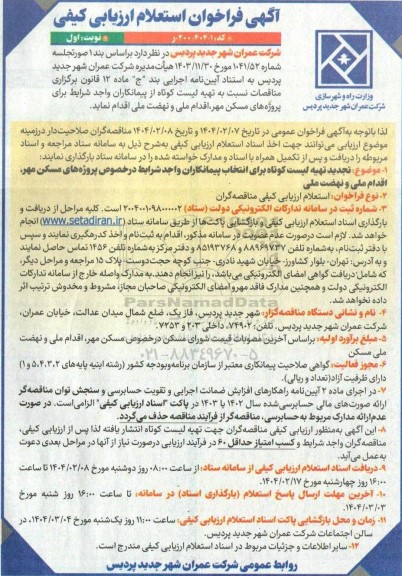 آگهی فراخوان استعلام ارزیابی کیفی
کد: ۲۰۰،۴۰۴،۱-ز
نوبت: اول
شرکت عمران شهر جدید پردیس در نظر دارد براساس بند ۱ صورتجلسه
شماره ۱۰۴۱/۵۲ مورخ ۱۴۰۳/۱۱/۳۰ هیأت مدیره شرکت عمران شهر جدید
پردیس به استناد آیین‌نامه اجرایی بند "ج" ماده ۱۲ قانون برگزاری
مناقصات نسبت به تهیه لیست کوتاه از پیمانکاران واجد شرایط برای
پروژه‌های مسکن مهر، اقدام ملی و نهضت ملی اقدام نماید.
وزارت راه و شهرسازی
شرکت عمران شهر جدید پردیس
لذا باتوجه به آگهی فراخوان عمومی در تاریخ ۱۴۰۴/۰۲/۰۷ و تاریخ ۱۴۰۴/۰۲/۰۸ مناقصه‌گران صلاحیت‌دار درزمینه
موضوع ارزیابی می‌توانند جهت اخذ اسناد استعلام ارزیابی کیفی به‌شرح ذیل به سامانه ستاد مراجعه و اسناد
مربوطه را دریافت و پس از تکمیل همراه با اسناد و مدارک خواسته شده را در سامانه ستاد بارگذاری نمایند:
۱- موضوع: تجدید تهیه لیست کوتاه برای انتخاب پیمانکاران واجد شرایط درخصوص پروژه‌های مسکن مهر،
اقدام ملی و نهضت ملی
۲- نوع فراخوان: استعلام ارزیابی کیفی مناقصه‌گران
۳- شماره ثبت در سامانه تدارکات الکترونیکی دولت (ستاد) ۲۰۰۴۰۰۱۰۹۸۰۰۰۰۰۲ است. کلیه مراحل از دریافت و
بارگذاری اسناد استعلام ارزیابی کیفی و بازگشایی پاکت‌ها از طریق سامانه ستاد (www.setadiran.ir) انجام
خواهد شد. لازم است درصورت عدم عضویت در سامانه مذکور، اقدام به ثبت‌نام و اخذ کدرهگیری نمایند و سپس
با دفتر ثبت‌نام، به‌شماره تلفن ۸۸۹۶۹۷۳۷ و ۸۵۱۹۳۷۶۸ و دفتر مرکز به‌شماره تلفن ۱۴۵۶ تماس حاصل نمایند
و به آدرس: تهران- بلوار کشاورز- خیابان شهید نادری- جنب کوچه حجت‌دوست- پلاک ۱۵ مراجعه و مراحل دیگر،
که شامل دریافت گواهی امضای الکترونیکی می‌باشد، را نیز انجام دهند. به مدارک واصله خارج از سامانه تدارکات
الکترونیکی دولت و همچنین مدارک فاقد مهر و امضای الکترونیکی صاحبان مجاز، مشروط و مخدوش ترتیب اثر
داده نخواهد شد.
۴- نام و نشانی دستگاه مناقصه‌گزار: شهر جدید پردیس، فاز یک، ضلع شمال میدان عدالت، خیابان عمران،
شرکت عمران شهر جدید پردیس. تلفن: ۷۴۹۰۲، داخلی ۲۰۳ و ۷۲۵۳.
۵- مبلغ برآورد اولیه: براساس آخرین مصوبات قیمت شورای مسکن درخصوص مسکن مهر، اقدام ملی و نهضت
ملی مسکن
۶- مجوز فعالیت: گواهی صلاحیت پیمانکاری معتبر از سازمان برنامه‌وبودجه کشور (رشته ابنیه پایه‌های ۵،۴،۳،۲ و ۱)
دارای ظرفیت آزاد (تعداد و ریالی).
۷- در اجرای ماده ۲ آیین‌نامه راهکارهای افزایش ضمانت اجرایی و تقویت حسابرسی و سنجش توان مناقصه‌گر
ارائه صورت‌های مالی حسابرسی‌شده سال ۱۴۰۲ یا ۱۴۰۳ در پاکت "اسناد ارزیابی کیفی" الزامی‌ست. در صورت
عدم‌ارائه مدارک مربوط به حسابرسی، مناقصه‌گر از فرآیند مناقصه حذف می‌گردد.
۸- این آگهی به‌منظور ارزیابی کیفی مناقصه‌گران جهت تهیه لیست کوتاه انتشار یافته لذا پس از ارزیابی کیفی،
مناقصه‌گران واجد شرایط و کسب امتیاز حداقل ۶۰ در فرآیند ارزیابی درصورت نیاز از آنها در مراحل بعدی دعوت
به‌عمل می‌آید.
۹- دریافت اسناد استعلام ارزیابی کیفی از سامانه ستاد: از ساعت ۰۸:۰۰ روز دوشنبه مورخ ۱۴۰۴/۰۲/۰۸ تا ساعت
۱۶:۰۰ روز چهارشنبه مورخ ۱۴۰۴/۰۲/۱۷.
۱۰- آخرین مهلت ارسال پاسخ استعلام (بارگذاری اسناد) در سامانه: تا ساعت ۱۶:۰۰ روز شنبه مورخ
۱۴۰۴/۰۳/۰۳.
۱۱- زمان و محل بازگشایی پاکت اسناد استعلام ارزیابی کیفی: ساعت ۱۱:۰۰ روز یکشنبه مورخ ۱۴۰۴/۰۳/۰۴، در
سالن اجتماعات شرکت عمران شهر جدید پردیس.
۱۲- سایر اطلاعات و جزئیات مربوط در اسناد استعلام ارزیابی کیفی مندرج است.
روابط عمومی شرکت عمران شهر جدید پردیس
ParsNamadData
۰۲۱-۸۸۳۴۹۶۷۰-۵